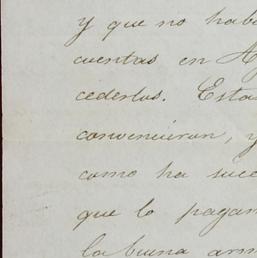 y que no hab
cuentas en A
cederlos. Esta
convencieron, y
como ha suce
que lo pagan
la buena arm